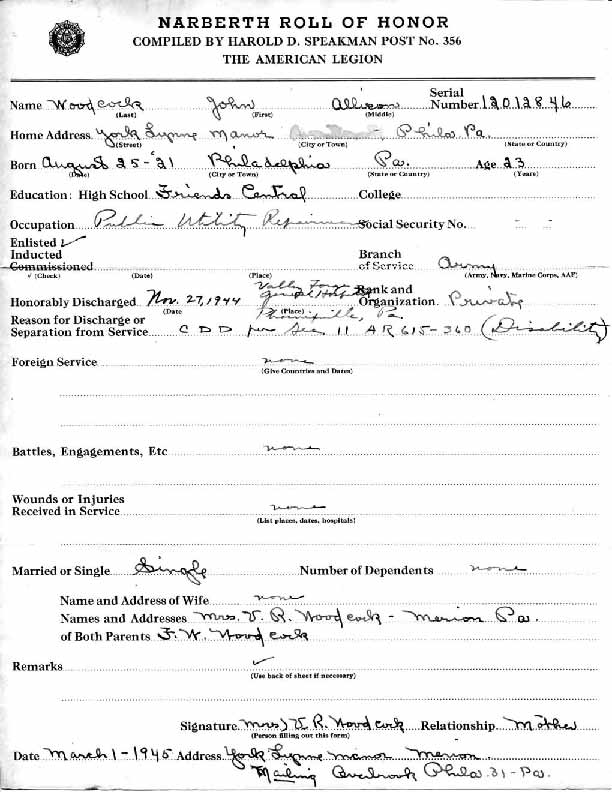 NARBERTH ROLL OF HONOR
COMPILED BY HAROLD D. SPEAKMAN POST No. 356
THE AMERICAN LEGION
Serial
Name Woodcock John Allison Number 12012846
(Last) (First) (Middle)
Home Address York Lynne Manor Phila Pa.
(Street) (City or Town) (State or Country)
Born August 25-'21 Philadelphia Pa. Age 23
(Date) (City or Town) (State or Country) (Years)
Education: High School Friends Central College
Occupation Public Utility Repairman Social Security No. - -
Enlisted ✓
Inducted Branch
Commissioned of Service Army
(Check) (Date) (Place) (Army, Navy, Marine Corps, AAF)
Valley Forge
General Hosp. Rank and
Honorably Discharged Nov. 27, 1944 Phoenixville, Pa. Organization Private
(Date (Place)
Reason for Discharge or
Separation from Service CDD per Sec II AR 615-360 (Disability)
Foreign Service none
(Give Countries and Dates)
Battles, Engagements, Etc none
Wounds or Injuries
Received in Service none
(List places, dates, hospitals)
Married or Single Single Number of Dependents none
Name and Address of Wife none
Names and Addresses Mrs. V. R. Woodcock - Merion Pa.
of Both Parents F. W. Woodcock
Remarks ✓
(Use back of sheet if necessary)
Signature Mrs) V R. Woodcock Relationship Mother
(Person filling out this form)
Date March 1-1945 Address York Lynne Manor Merion
Mailing Overbrook Phila. 31-Pa.